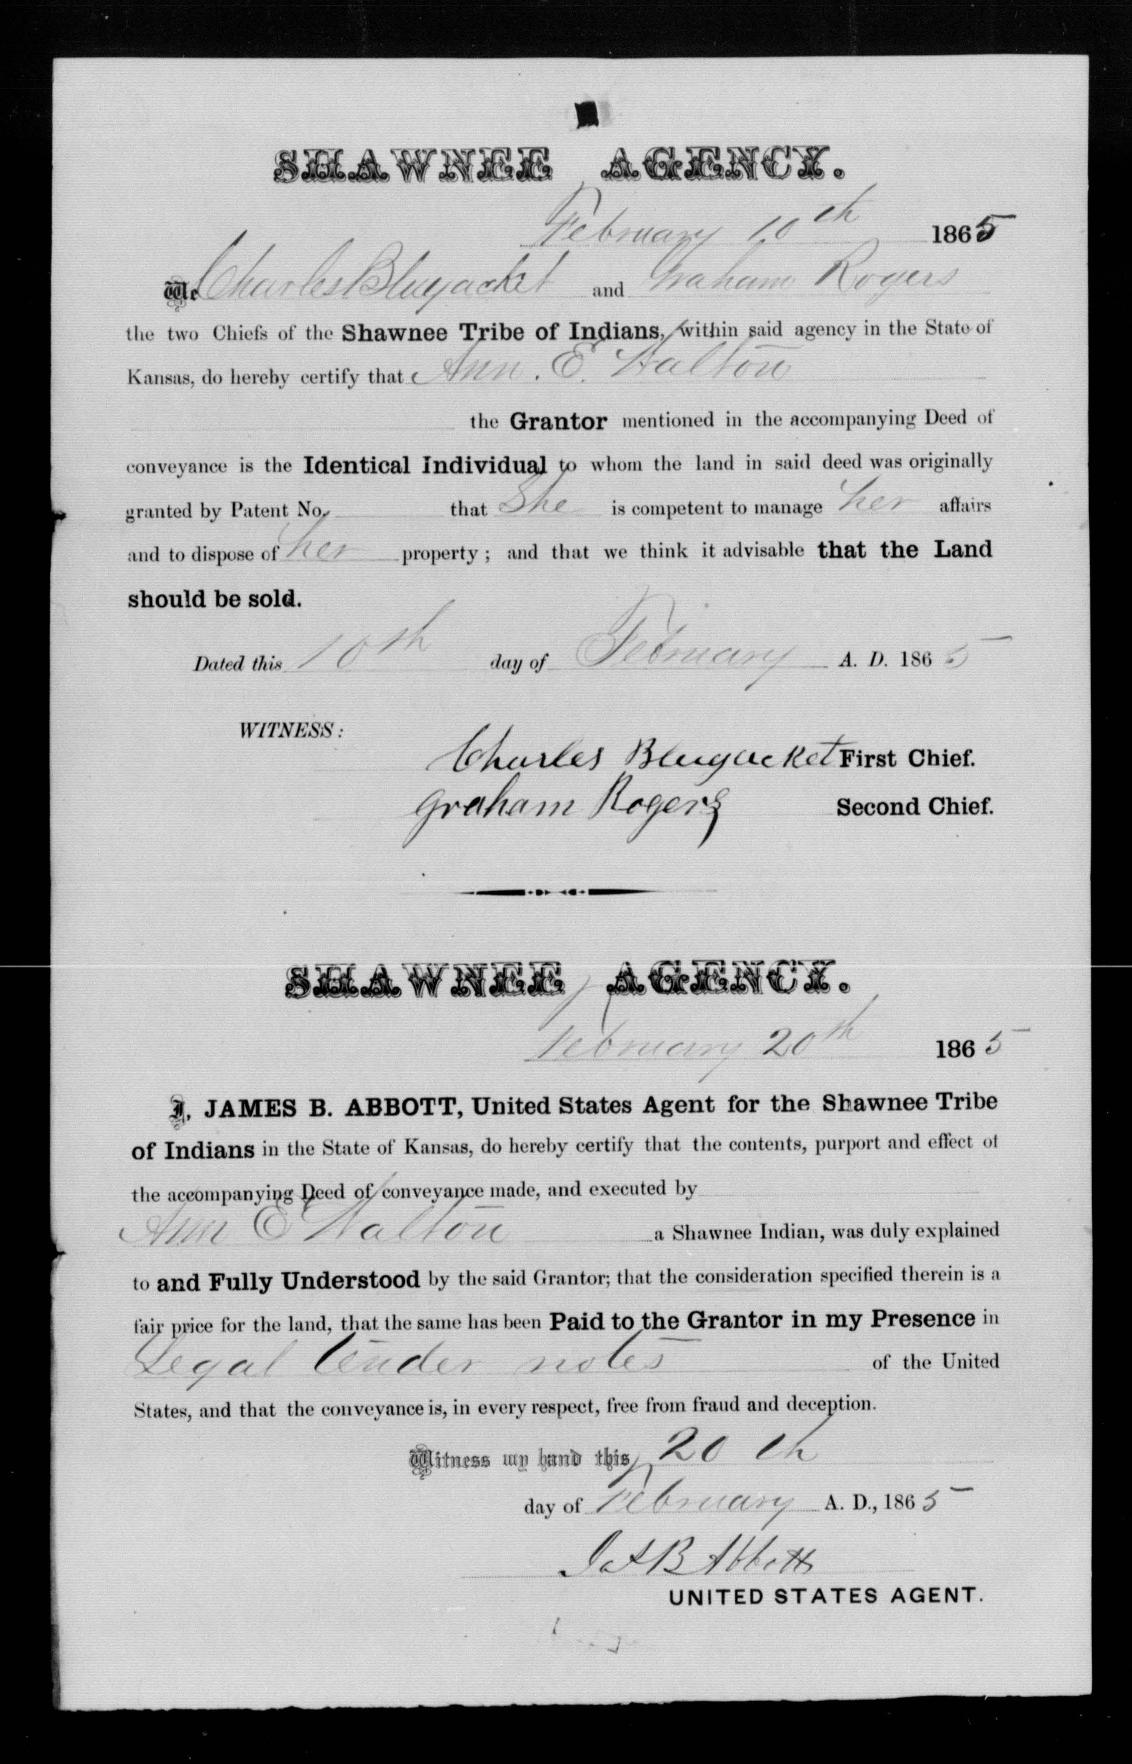 SHAWNEE AGENCY.
February 10th 1865
We Charles Bluejacket and Graham Rogers
the two Chiefs of the Shawnee Tribe of Indians, within said agency in the State of
Kansas, do hereby certify that Ann. E. Walton
the Grantor mentioned in the accompanying Deed of
conveyance is the Identical Individual to whom the land in said deed was originally
granted by Patent No. that She is competent to manage her affairs
and to dispose of her property; and that we think it advisable that the Land
should be sold.
Dated this 10th day of February A. D. 1865
WITNESS:
Charles Bluejacket First Chief.
Graham Rogers Second Chief.
SHAWNEE AGENCY.
February 20th 1865
I, JAMES B. ABBOTT, United States Agent for the Shawnee Tribe
of Indians in the State of Kansas, do hereby certify that the contents, purport and effect of
the accompanying Deed of conveyance made, and executed by
Ann E Walton a Shawnee Indian, was duly explained
to and Fully Understood by the said Grantor; that the consideration specified therein is a
fair price for the land, that the same has been Paid to the Grantor in my Presence in
Legal tender notes of the United
States, and that the conveyance is, in every respect, free from fraud and deception.
Witness my hand this 20th
day of February A. D., 1865
Jas B Abbott
UNITED STATES AGENT.